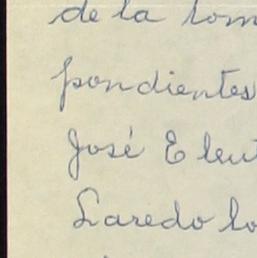 de la tom
pondientes
José Eleut
Laredo lo